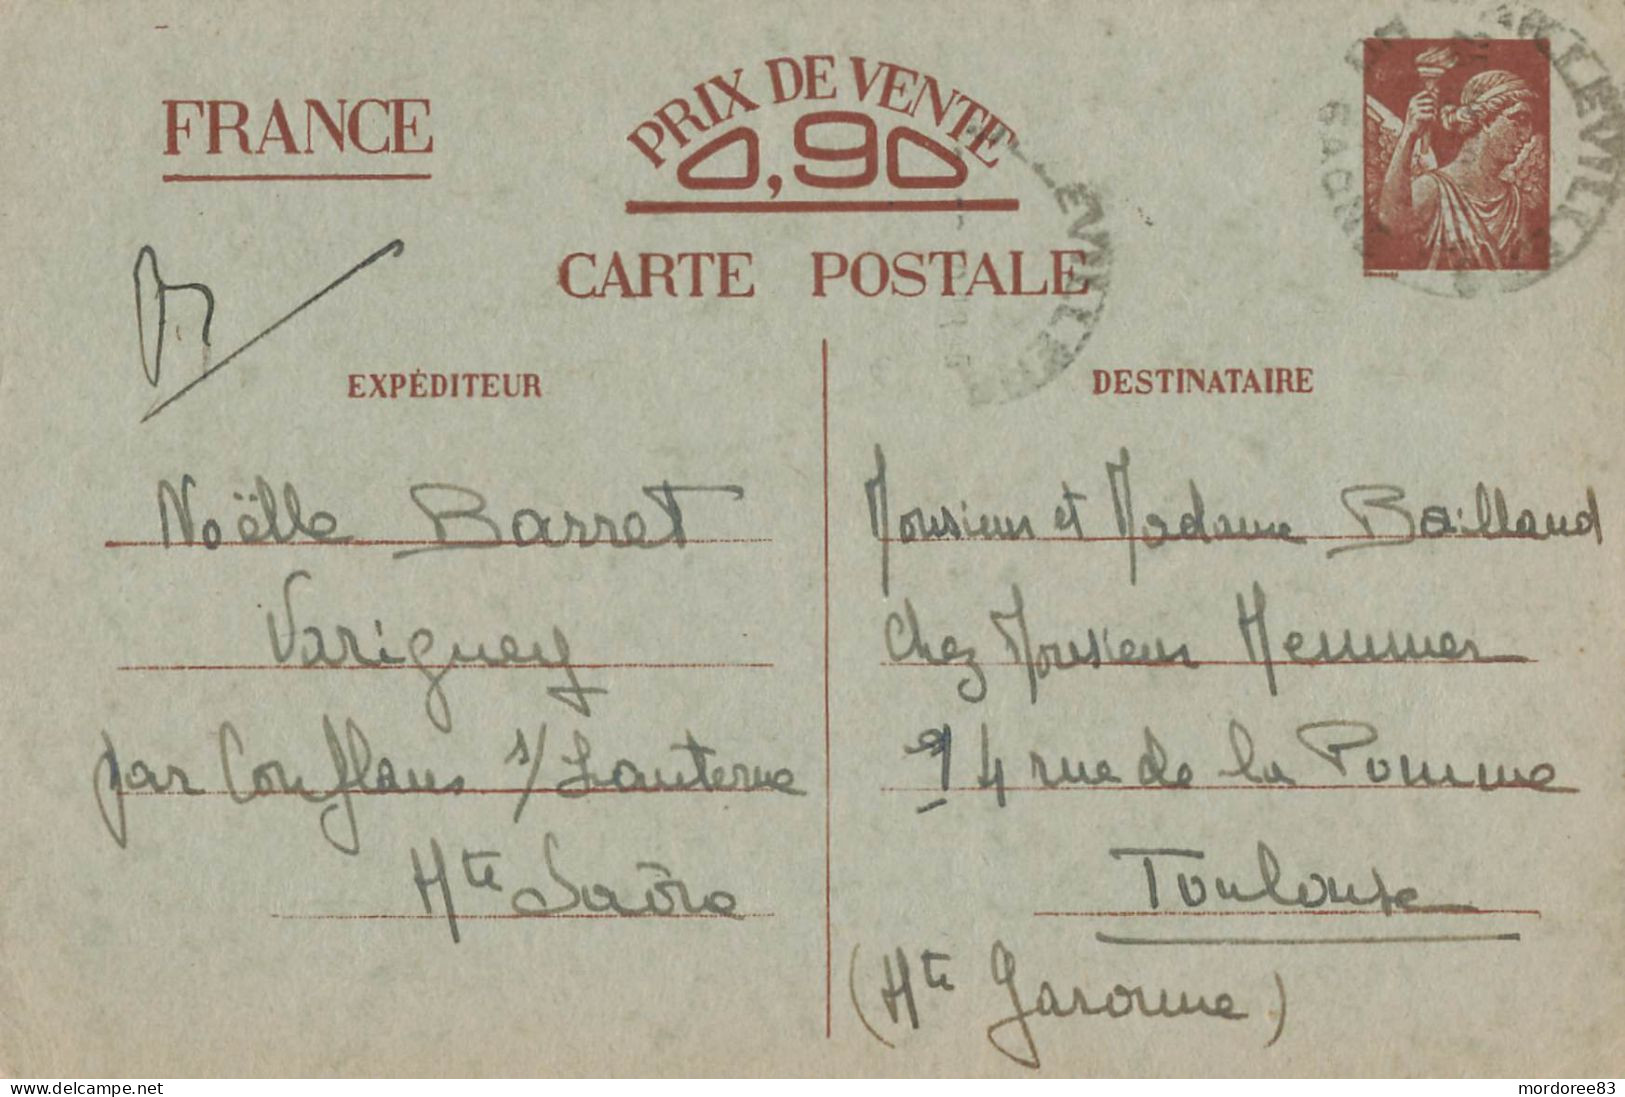 FRANCE
PRIX DE VENTE
0,90
CARTE POSTALE
EXPÉDITEUR
Noëlle Barret
Variguey
par Conflans s/ Lanterne
Hte Saône
DESTINATAIRE
Monsieur et Madame Bailland
chez Monsieur Hemmer
14 rue de la Pomme
Toulouse
(Hte Garonne)
delcampe.net
mordoree83